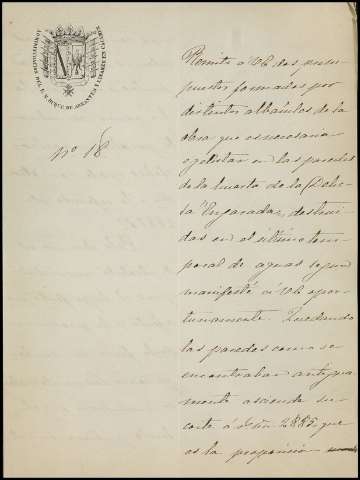 ADMINISTRACION DEL E. S. DUQUE DE ABRANTES Y LINARES EN CACERES
nº 18
Remito a VE dos presu-
puestos formados por
distintos albañiles de la
obra que es necesaria
ejecutar en las paredes
de la huerta de la Dehe-
sa Enjarada, destrui-
das en el último tem-
poral de aguas segun
manifesté á VE opor-
tunamente. Quedando
las paredes como se
encontraban antigua-
mente asciende su
coste á 2885, que
es la proposicion